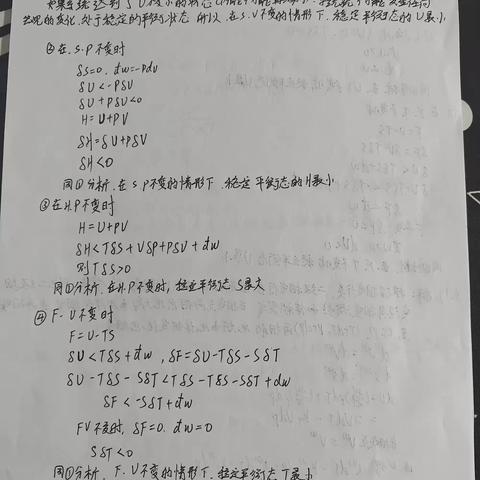 如果系统达到了U极小的状态
出现的变化,处于稳定的平衡状态 所以,在S.V不变的情形下,稳定平衡状态的U最小
②在.S.P不变时
δS=0. đw=-Pdv
δU<-PδV
δU+PδV<0
H=U+PV
δH=δU+PδV
δH<0
同①分析.在S.P不变的情形下.稳定平衡态的H最小
③在H.P不变时
H=U+PV
δH<TδS+VδP+PδV+đw
则TδS>0
同①分析.在H.P不变时,稳定平衡态S最大
④F.V不变时
F=U-TS
δU<TδS+đw,δF=δU-TδS-SδT
δU-TδS-SδT<TδS-TδS-SδT+đw
δF<-SδT+đw
FV不变时,δF=0.đw=0
SδT<0
同①分析.F.V不变的情形下.稳定平衡态T最小